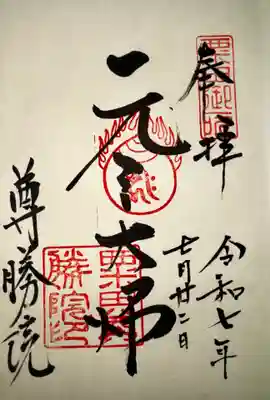 奉拝
令和七年
七月廿二日
元三大師
尊勝院